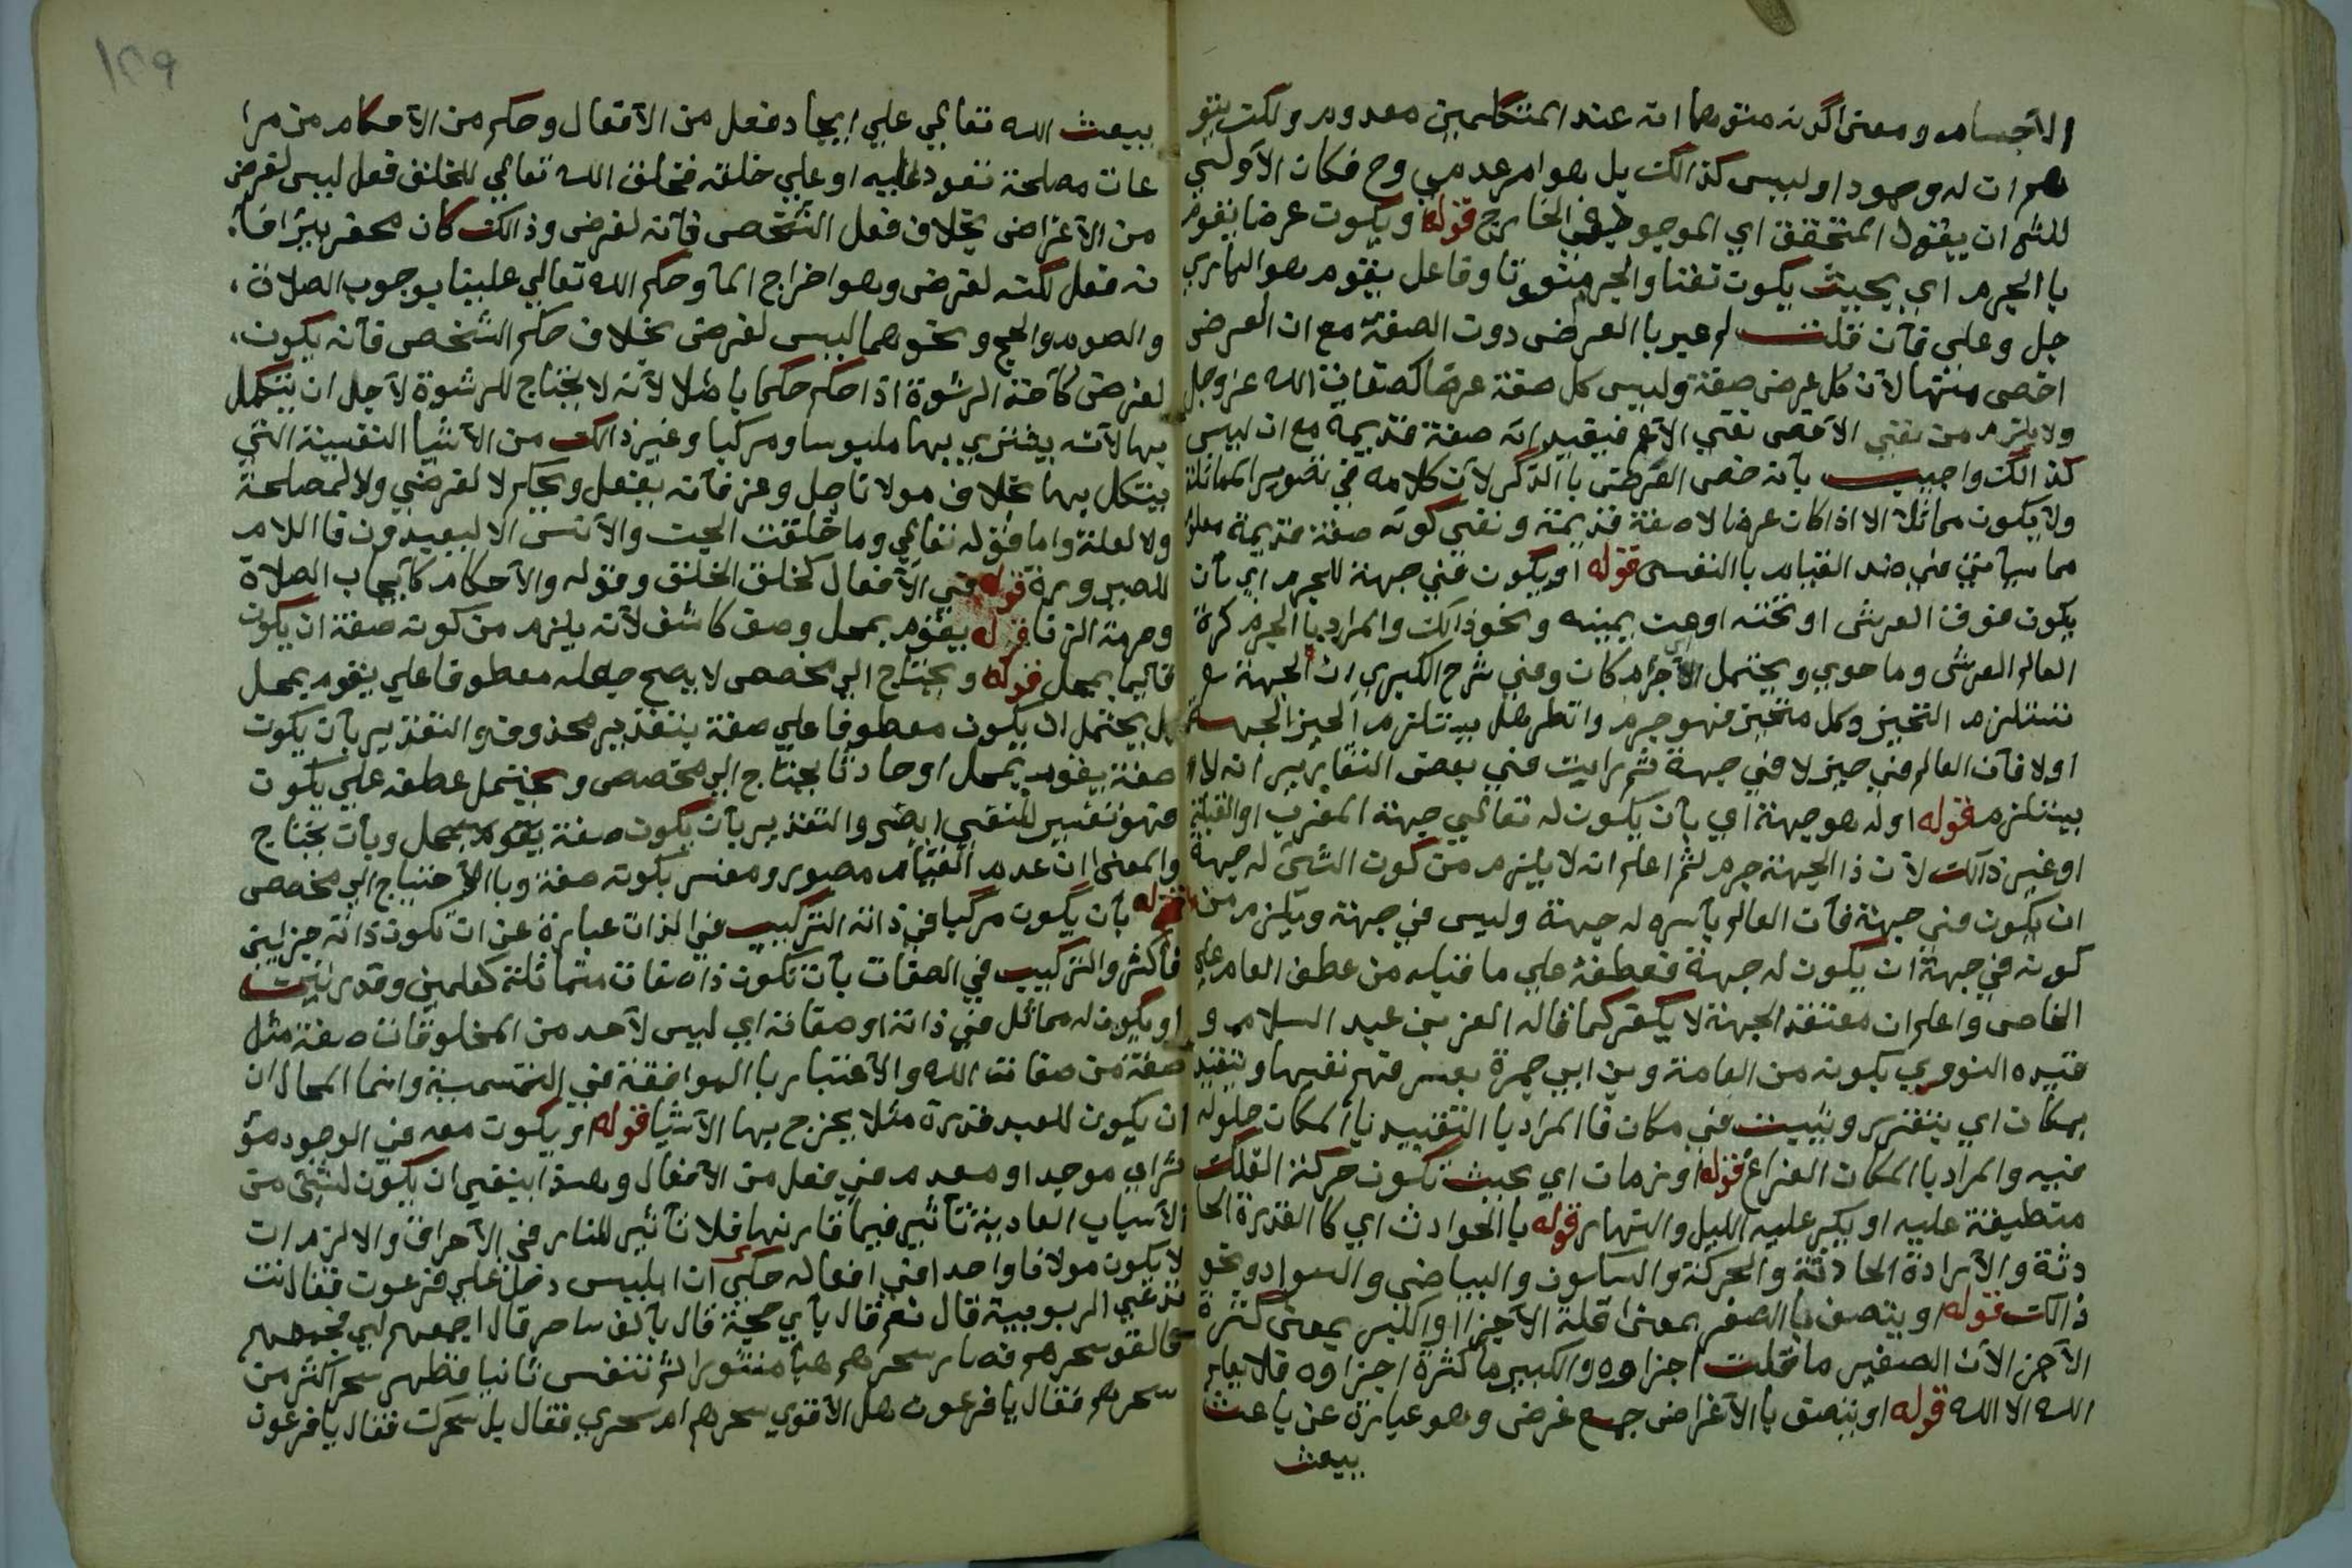 الأجسام ومعنى اكونه متوهما انه عند المتكلمين معدوم ولكن يتو
هم ان له وجودا وليس كذالك بل هو امر عدمي وح فكان الأولى
للش ان يقول المتحقق اي الموجود في الخارج قوله او يكون عرضا يقوم
با الجرم اي بحيث يكون تفنا والجرم وفاعل يقوم هو الباري
جل وعلى فآن قلت لم عبر با العرض دون الصفة مع ان العرض
اخص منها لآن كل عرض صفة وليس كل صفة عرضا كصفات الله عز وجل
ولا يلزم من نفي الأخص نفي الأعم فيفيد انه صفة قديمة مع ان ليس
كذالك واجيب بأنه خص العرض با الذكر لآن كلامه في تصوير المماثلة
ولا يكون مماثلا الا اذا كان عرضا لا صفة قديمة ونفي كونه صفة قديمة معلوم
مما سيآتي في ضد القيام با النفس قوله او يكون في جهة للجرم اي بآن
يكون فوق العرش او تحته او عن يمينه ونحو ذالك والمراد با الجرم كرة
العالم العرش وما حوى ويحتمل الأجرام كان وفي شرح الكبري ان الجهة
تستلزم التحيز وكل متحيز فهو جرم وانظر هل يستلزم الحيز الجهة
اولا فآن العالم في حيز لا في جهة ثم رايت في بعض التقارير انه لا
يستلزم قوله او له هو جهة اي بآن يكون له تعالي جهة المغرب او القبلة
او غير ذالك لآن ذا الجهة جرم ثم اعلم انه لا يلزم من كون الشئ له جهة
ان يكون في جهة فآن العالم بآسره له جهة وليس في جهة ويلزم من
كونه في جهة ان يكون له جهة فعطفه علي ما قبله من عطف العام علي
الخاص واعلم ان معتقد الجهة لا يكفر كما قاله العز بن عبد السلام و
قيده النووي بكونه من العامة وبن ابي جمرة بعسر فهم نفيها
بمكان اي يتقرر ويثبت في مكان فا المراد با التقييد با المكان حلوله
فيه والمراد با المكان الفراغ قوله او زمان اي بحيث تكون حركة الفلك
منطبقة عليه او يكر عليه الليل والنهار قوله با الحوادث اي كا القدرة الحا
دثة والآرادة الحادثة والحركة والسكون والبياض والسواد ونحو
ذالك قوله او يتصف با الصغر بمعنى قلة الآجزا او الكبر بمعنى كثرة
الآجزا لآن الصغير ما قلت اجزاوه والكبير ما كثرة اجزاوه فلا يعلم
الله الا الله قوله او يتصف با الآغراض جمع غرض وهو عبارة عن باعث
يبعث
١٢٩
يبعث الله تعالي علي ايجاد فعل من الآفعال وحكم من الآحكام من مرا
عات مصلحة تعود عليه او علي خلقه فخلق الله تعالي للخلق فعل ليس لغرض
من الآغراض بخلاف فعل الشخص فآنه لغرض وذالك كان محفر بئرا فآ
نه فعل لكنه لغرض وهو اخراج المآ وحكم الله تعالي علينا بوجوب الصلاة
والصوم والحج ونحوهما ليس لغرض بخلاف حكم الشخص فآنه يكون
لغرض كآخذ الرشوة اذا حكم حكما باطلا لآنه لا يحتاج للرشوة لآجل ان يتكمل
بها لآنه يشتري بها ملبوسا ومركبا وغير ذالك من الآشيا النفيسة التي
يتكل بها بخلاف مولانا جل وعز فآنه يفعل ويحكم لا لغرض ولا لمصلحة
ولا لعلة واما قوله تعالي وما خلقت الجن والآنس الا ليعبدون فا اللام
للصيرورة قوله في الآفعال كخلق الخلق وقوله والآحكام كآيجاب الصلاة
وحرمة الزنا قوله يقوم بمحل وصف كاشف لآنه يلزم من كونه صفة ان يكون
قائما بمحل قوله ويحتاج الي مخصص لا يصح جعله معطوفا علي يقوم بمحل
بل يحتمل ان يكون معطوفا علي صفة بتقدير محذوف والتقدير بآن يكون
صفة يقوم بمحل او حادثا يحتاج الي مخصص ويحتمل عطفه علي يكون
فهو تفسير للنفي ايضى والتقدير بآن يكون صفة يقوم بمحل وبآن يحتاج
والمعنى ان عدم القيام مصور ومفسر بكونه صفة وبا الآحتياج الي مخصص
قوله بآن يكون مركبا في ذاته التركيب في الذات عبارة عن ان تكون ذاته جزايين
فآكثر والتركيب في الصفات بآن تكون ذا صفات متماثلة كعلمين وقدرتين
او يكون له مماثل في ذاته او صفاته اي ليس لآحد من المخلوقات صفة مثل
صفة من صفات الله والآعتبار با الموافقة في التسمية وانما المحال ان
ان يكون للعبد قدرة مثلا يخرج بها الآشيا قوله او يكون معه في الوجود مؤ
ثر اي موجد او معدم في فعل من الآفعال وهذا ينفي ان يكون لشئ من
الآسباب العادية تآثير فيما قارنها فلا تآثير للنار في الآحراق والا لزم ان
لا يكون مولانا واحدا في افعاله حكي ان ابليس دخل علي فرعون فقال انت
تدعي الربوبية قال نعم قال بآي حجة قال بآلف ساحر قال اجمعهم لي فجمعهم
فالقو سحرهم فصار سحرهم هبآ منثورا ثم تنفس ثانيا فظهر سحر اكثر من
سحرهم فقال يا فرعون هل الآقوي سحرهم ام سحري فقال بل سحرك فقال يا فرعون